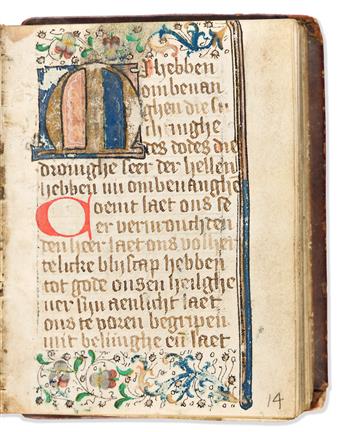 Mi hebben
ombevan
ghen die su
chtinghe
des dodes die
drouighe seer der hellen
hebben mi ombevanghe
Coemt laet ons se
er vervrouchten
den heer laet ons volher
telicke blijscap hebben
tot gode onsen heilghe
ver sijn aensicht laet
ons te voren begripen
mit belinghe en laet
14